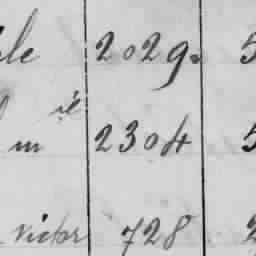 le 2029. 5
m ie 2304 5
victor 728 2